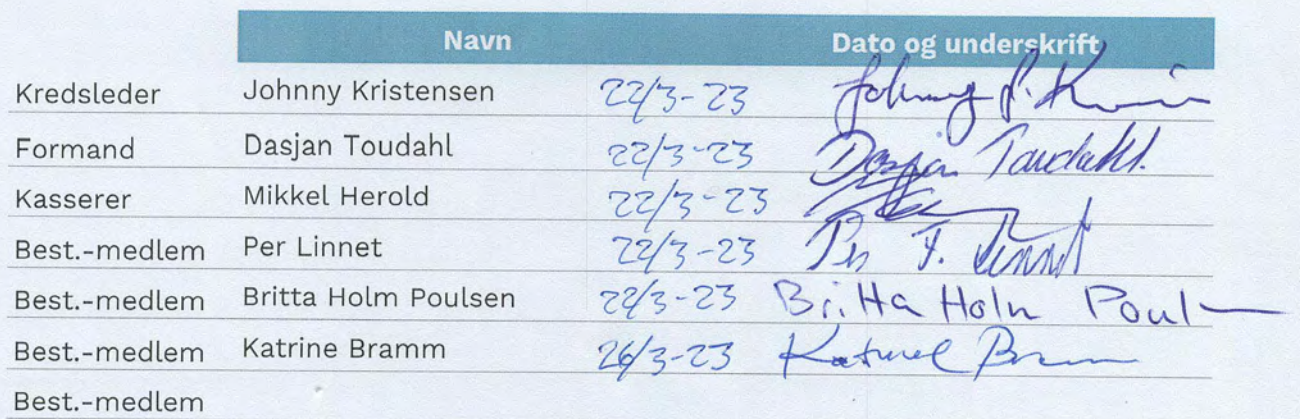 Navn Dato og underskrift
Kredsleder Johnny Kristensen 22/3-23 Johnny P. K
Formand Dasjan Toudahl 22/3-23 Dasjan Toudahl.
Kasserer Mikkel Herold 22/3-23
Best.-medlem Per Linnet 22/3-23 Per F. Linnet
Best.-medlem Britta Holm Poulsen 22/3-23 Britta Holm Poul
Best.-medlem Katrine Bramm 26/3-23
Best.-medlem